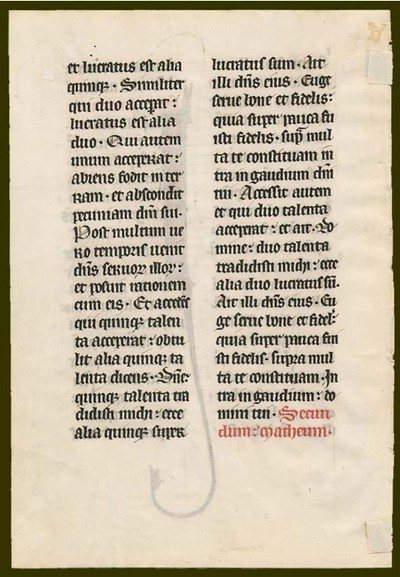 et lucratus est alia
quinq; · Similiter
qui duo accepat :
lucratus est alia
duo · Qui autem
unum acceperat :
abiens fodit in ter
ram · et abscondit
pecuniam dni sui.
Post multum ue
ro temporis uenit
dns seruor illor :
et posuit rationem
cum eis · Et access
qui quinq; talen
ta acceperat : obtu
lit alia quinq; ta
lenta dicens · Dne
quinq; talenta tra
didisti michi : ecce
alia quinq; super
lucratus sum · Ait
illi dns eius · Euge
serue bone et fidelis :
quia super pauca fu
isti fidelis · sup mul
ta te constituam in
tra in gaudium dni
tui · Accessit autem
et qui duo talenta
acceperat : et ait · Do
mine : duo talenta
tradidisti michi : ecce
alia duo lucratus su .
Ait illi dns eius · Eu
ge serue bone et fidel :
quia super pauca fui
sti fidelis · supra mul
ta te constituam · In
tra in gaudium : do
mini tui · Secun
dum : matheum ·